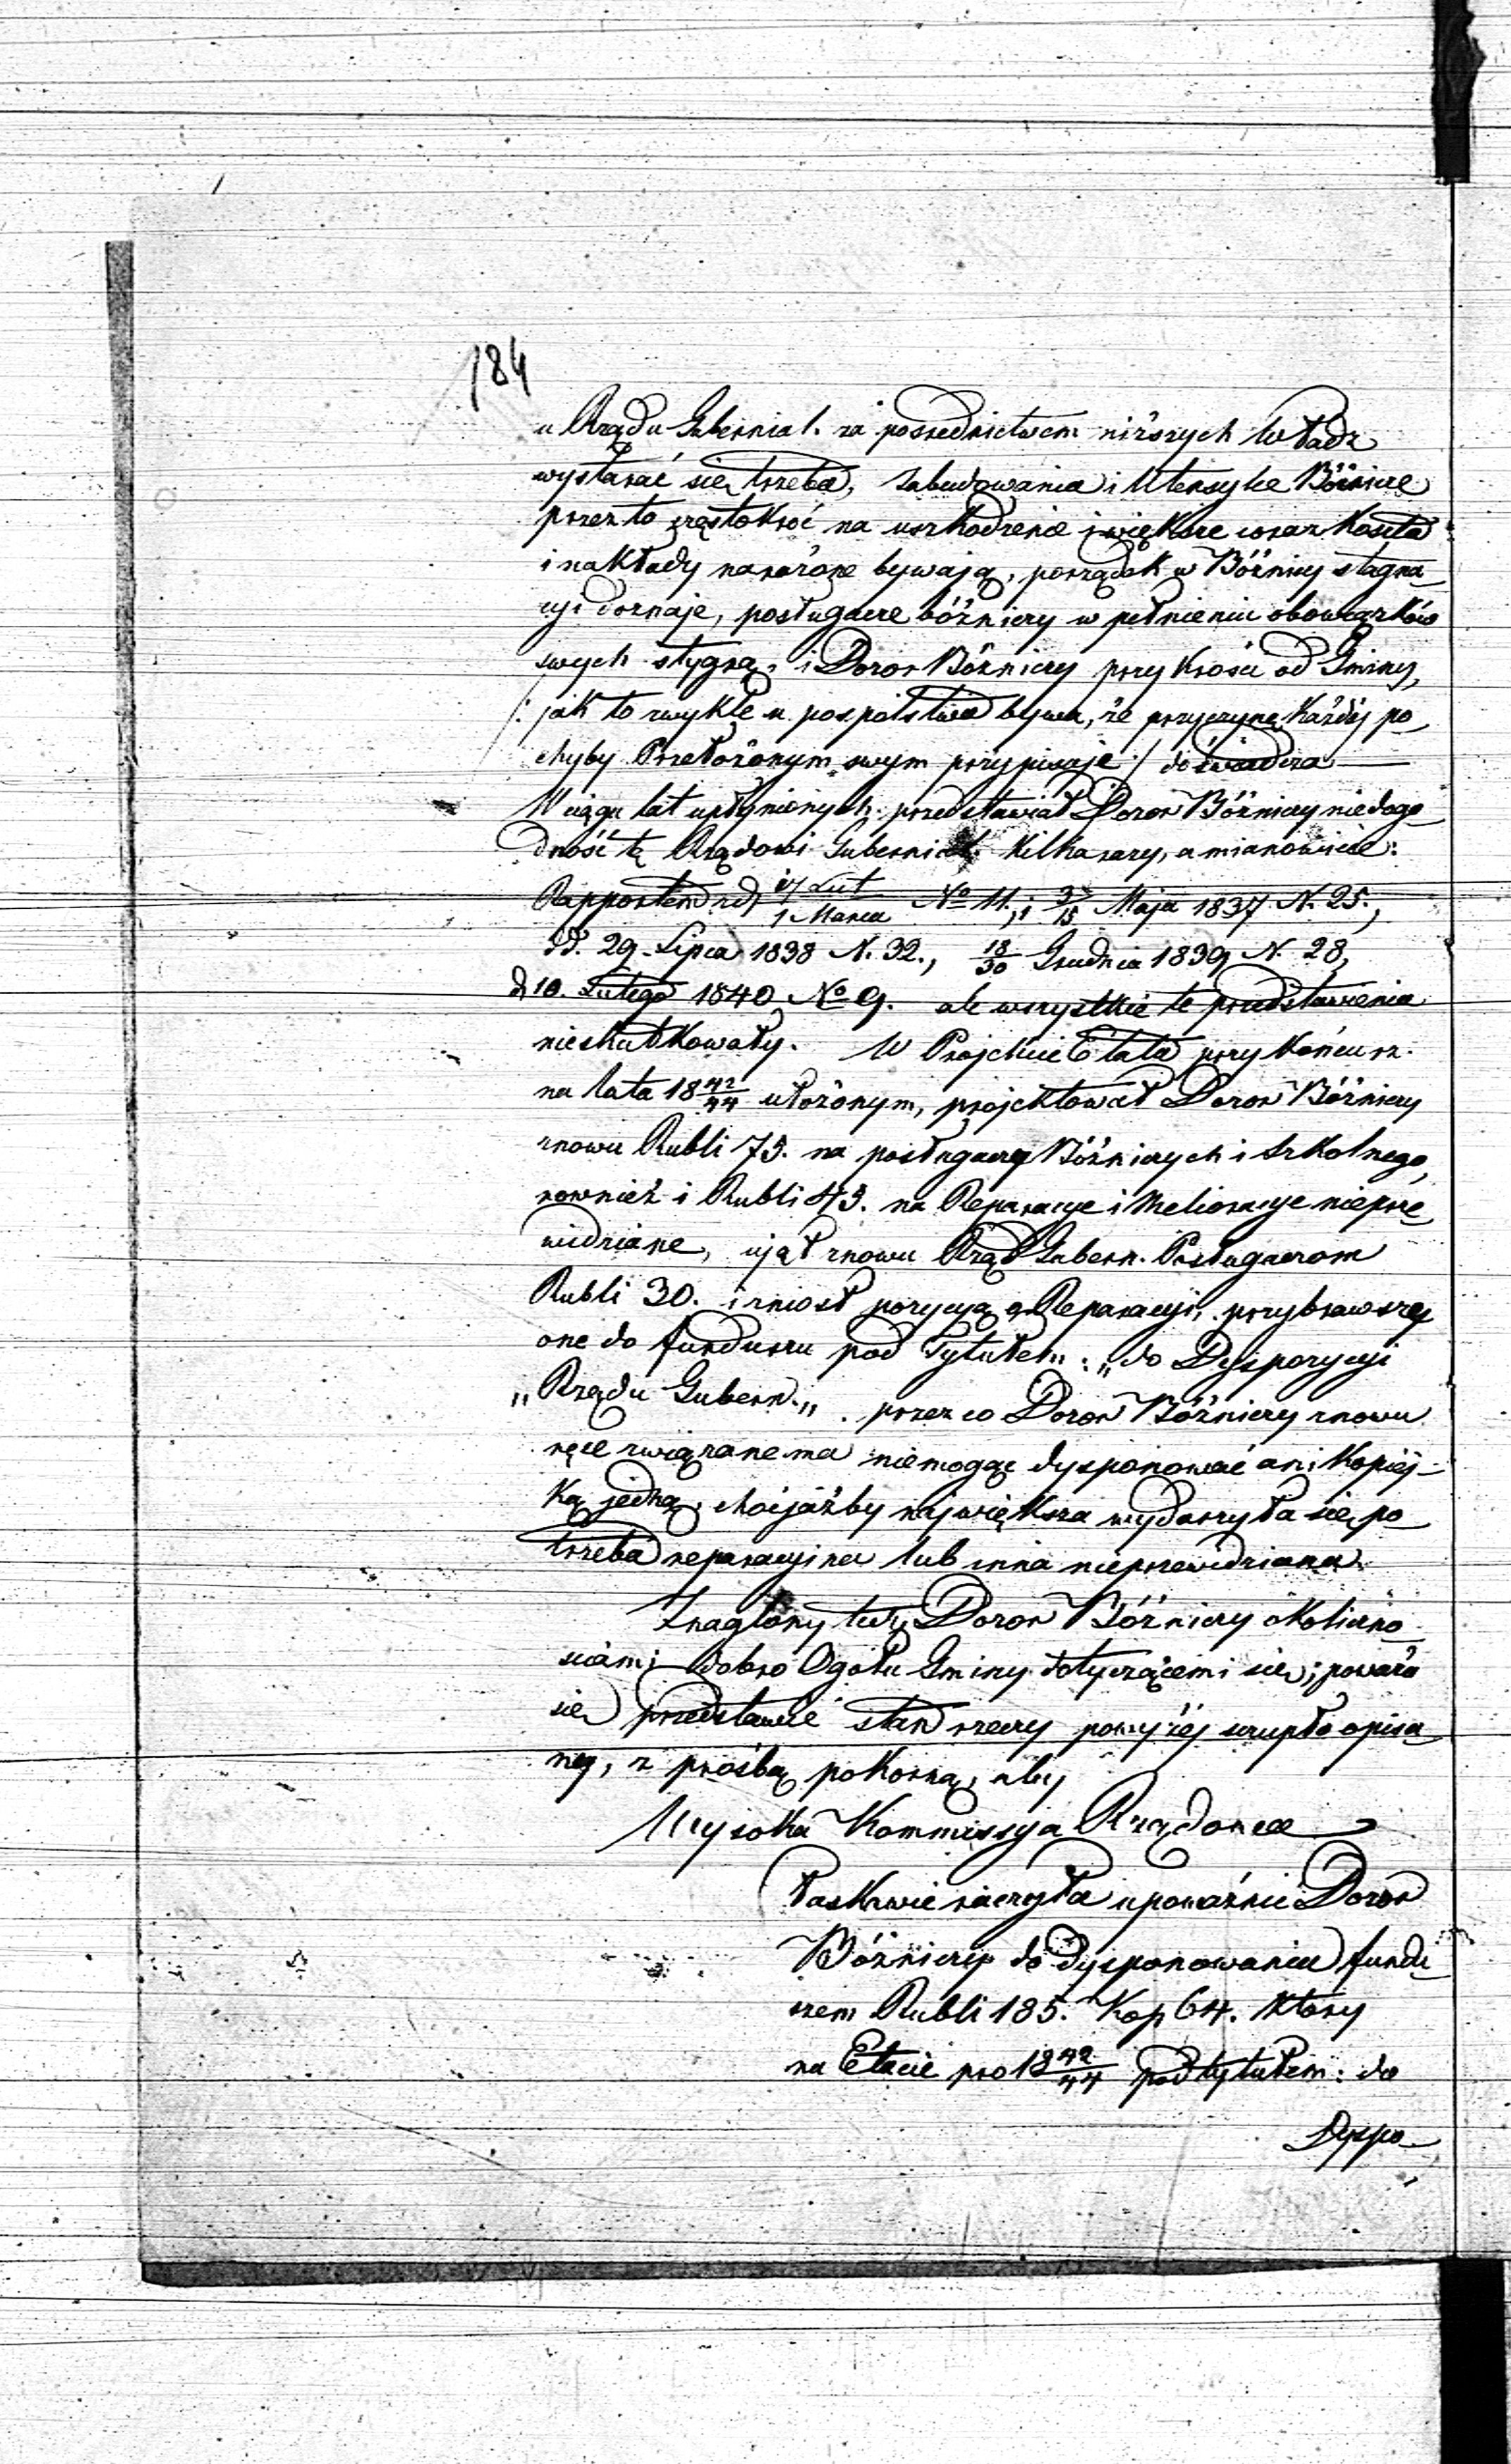 184
u Rządu Gubernial. za posrednictwem niższych Władz
wystarać się trzeba, zabudowania i Utensylia Bóźnicze
przez to częstokroć na uszkodzenie i większe coraz koszta
i nakłady narażone bywają, porządek w Bóźnicy stagna-
cyi doznaje, posługacze bóźniczy w pełnieniu obowiązków
swych stygną, i Dozor Bóźniczy przykrości od Gminy,
/: jak to zwykle u pospólstwa bywa, że przyczynę każdéj po-
chyby Przełożonym swym przypisuje :/ doświadcza
W ciągu lat upłynionych przedstawiał Dozor Bóźniczy niedogo-
dność tę Rządowi Gubernial. kilkarazy, a mianowicie:
Rapportem z d. 17 Lut/1 Marca No 11., i 3/15 Maja 1837 N. 25.,
dd. 29. Lipca 1838 N. 32., 18/30 Grudnia 1839 N. 28,
d 10. Lutego 1840 No 9. ale wszystkie te przedstawienia
nieskutkowały. W Projekcie Etatu przy końcu r.
na lata 18 42/44 ułożonym, projektował Dozor Bóźniczy
znowu Rubli 75. na posługaczy Bóźniczych i szkolnego,
rownież i Rubli 45. na Reparacye i Melioracye nieprze-
widziane, ujął znowu Rząd Gubern. Posługaczom
Rubli 30. i zniosł pozycyą Reparacyi, przybrawszy
one do funduszu pod Tytułem: „do Dyspozycyi
„Rządu Gubern.„ . przez co Dozor Bóźniczy znowu
ręce związane ma niemogąc dysponować ani kopiéj-
ką jedną, chociażby największa wydarzyła się po-
trzeba reparacyina lub inna nieprzewidziana.
Znaglony tedy Dozor Bóźniczy okoliczno-
sciami dobro Ogołu Gminy dotyczącemi się; poważa
się przedstawić stan rzeczy powyżéj scrupło opisa-
néj, z prośbą pokorną, aby
Wysoka Kommissya Rządowa
łaskawie raczyła upoważnić Dozor
Bóźniczy do dysponowania fundu-
szem Rubli 185. Kop 64. który
na Etacie pro 18 42/44 pod tytułem: do
Dyspo-